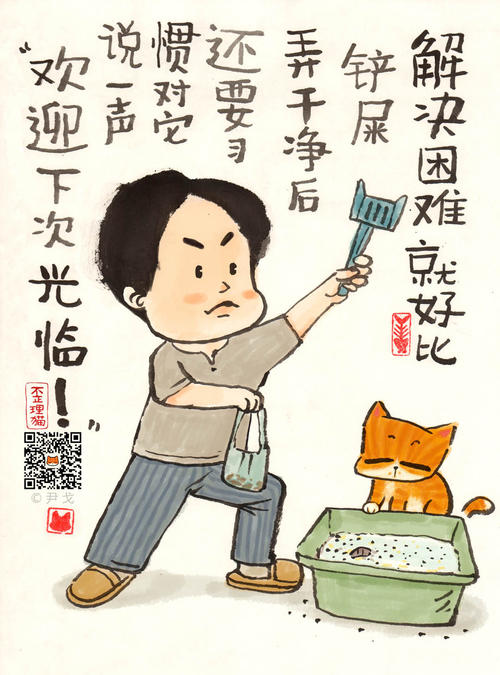 解决困难就好比
铲屎
弄干净后
还要习
惯对它
说一声
“欢迎下次光临！”
歪理猫
©尹戈